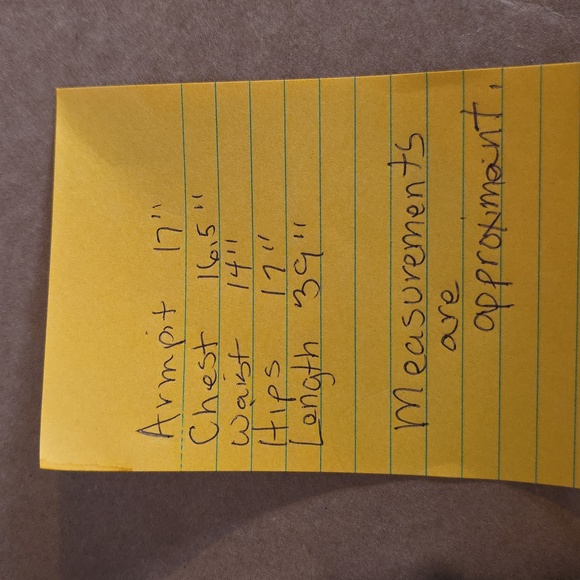 Armpit 17"
Chest 16.5"
Waist 14"
Hips 17"
Length 39"
Measurements
are
approximant.